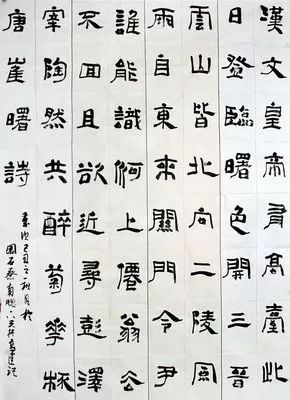 漢文皇帝有高臺此
日登臨曙色開三晉
雲山皆北向二陵風
雨自東來關門令尹
誰能識河上僊翁去
不回且欲近尋彭澤
宰陶然共醉菊華杯
唐崔曙詩
歲次己丑之秋月於